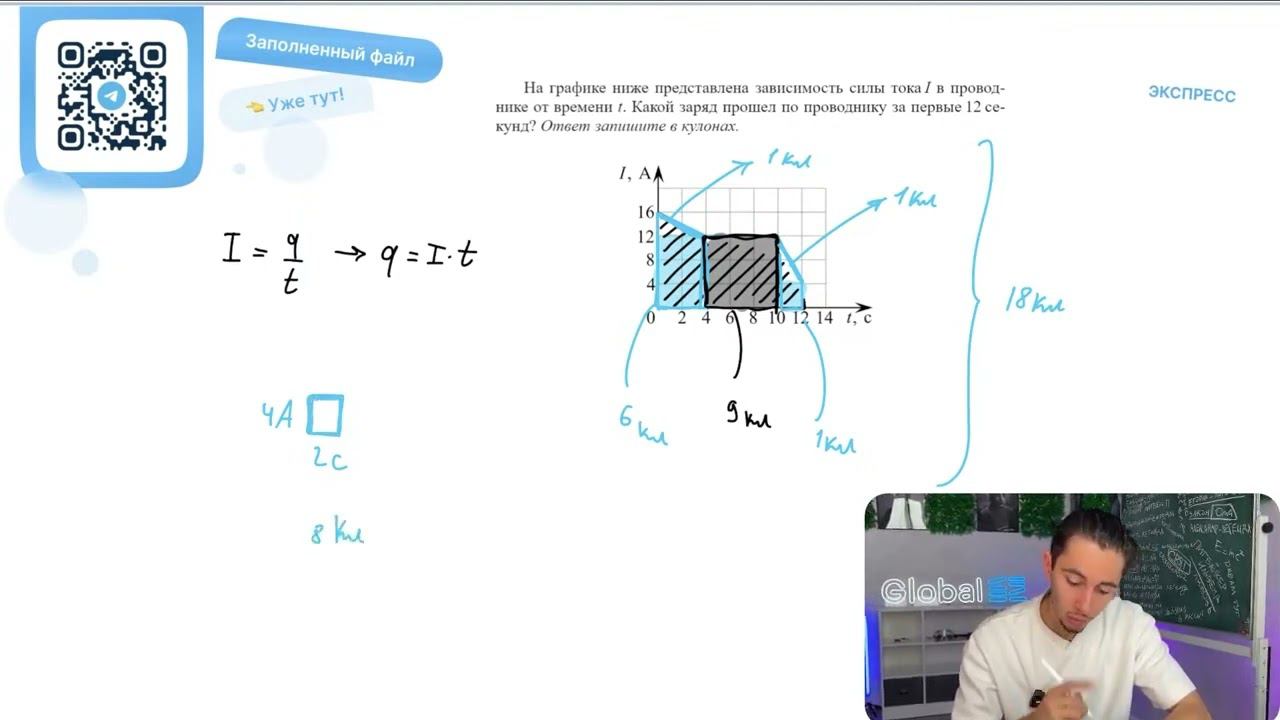 Заполненный файл
👈 Уже тут!
На графике ниже представлена зависимость силы тока I в провод-
нике от времени t. Какой заряд прошел по проводнику за первые 12 се-
кунд? Ответ запишите в кулонах.
ЭКСПРЕСС
I = q/t → q = I·t
I, А
16
12
8
4
0 2 4 6 8 10 12 14 t, с
1 Кл
1 Кл
18 Кл
6 Кл
9 Кл
1 Кл
4А
2с
8 Кл
Global